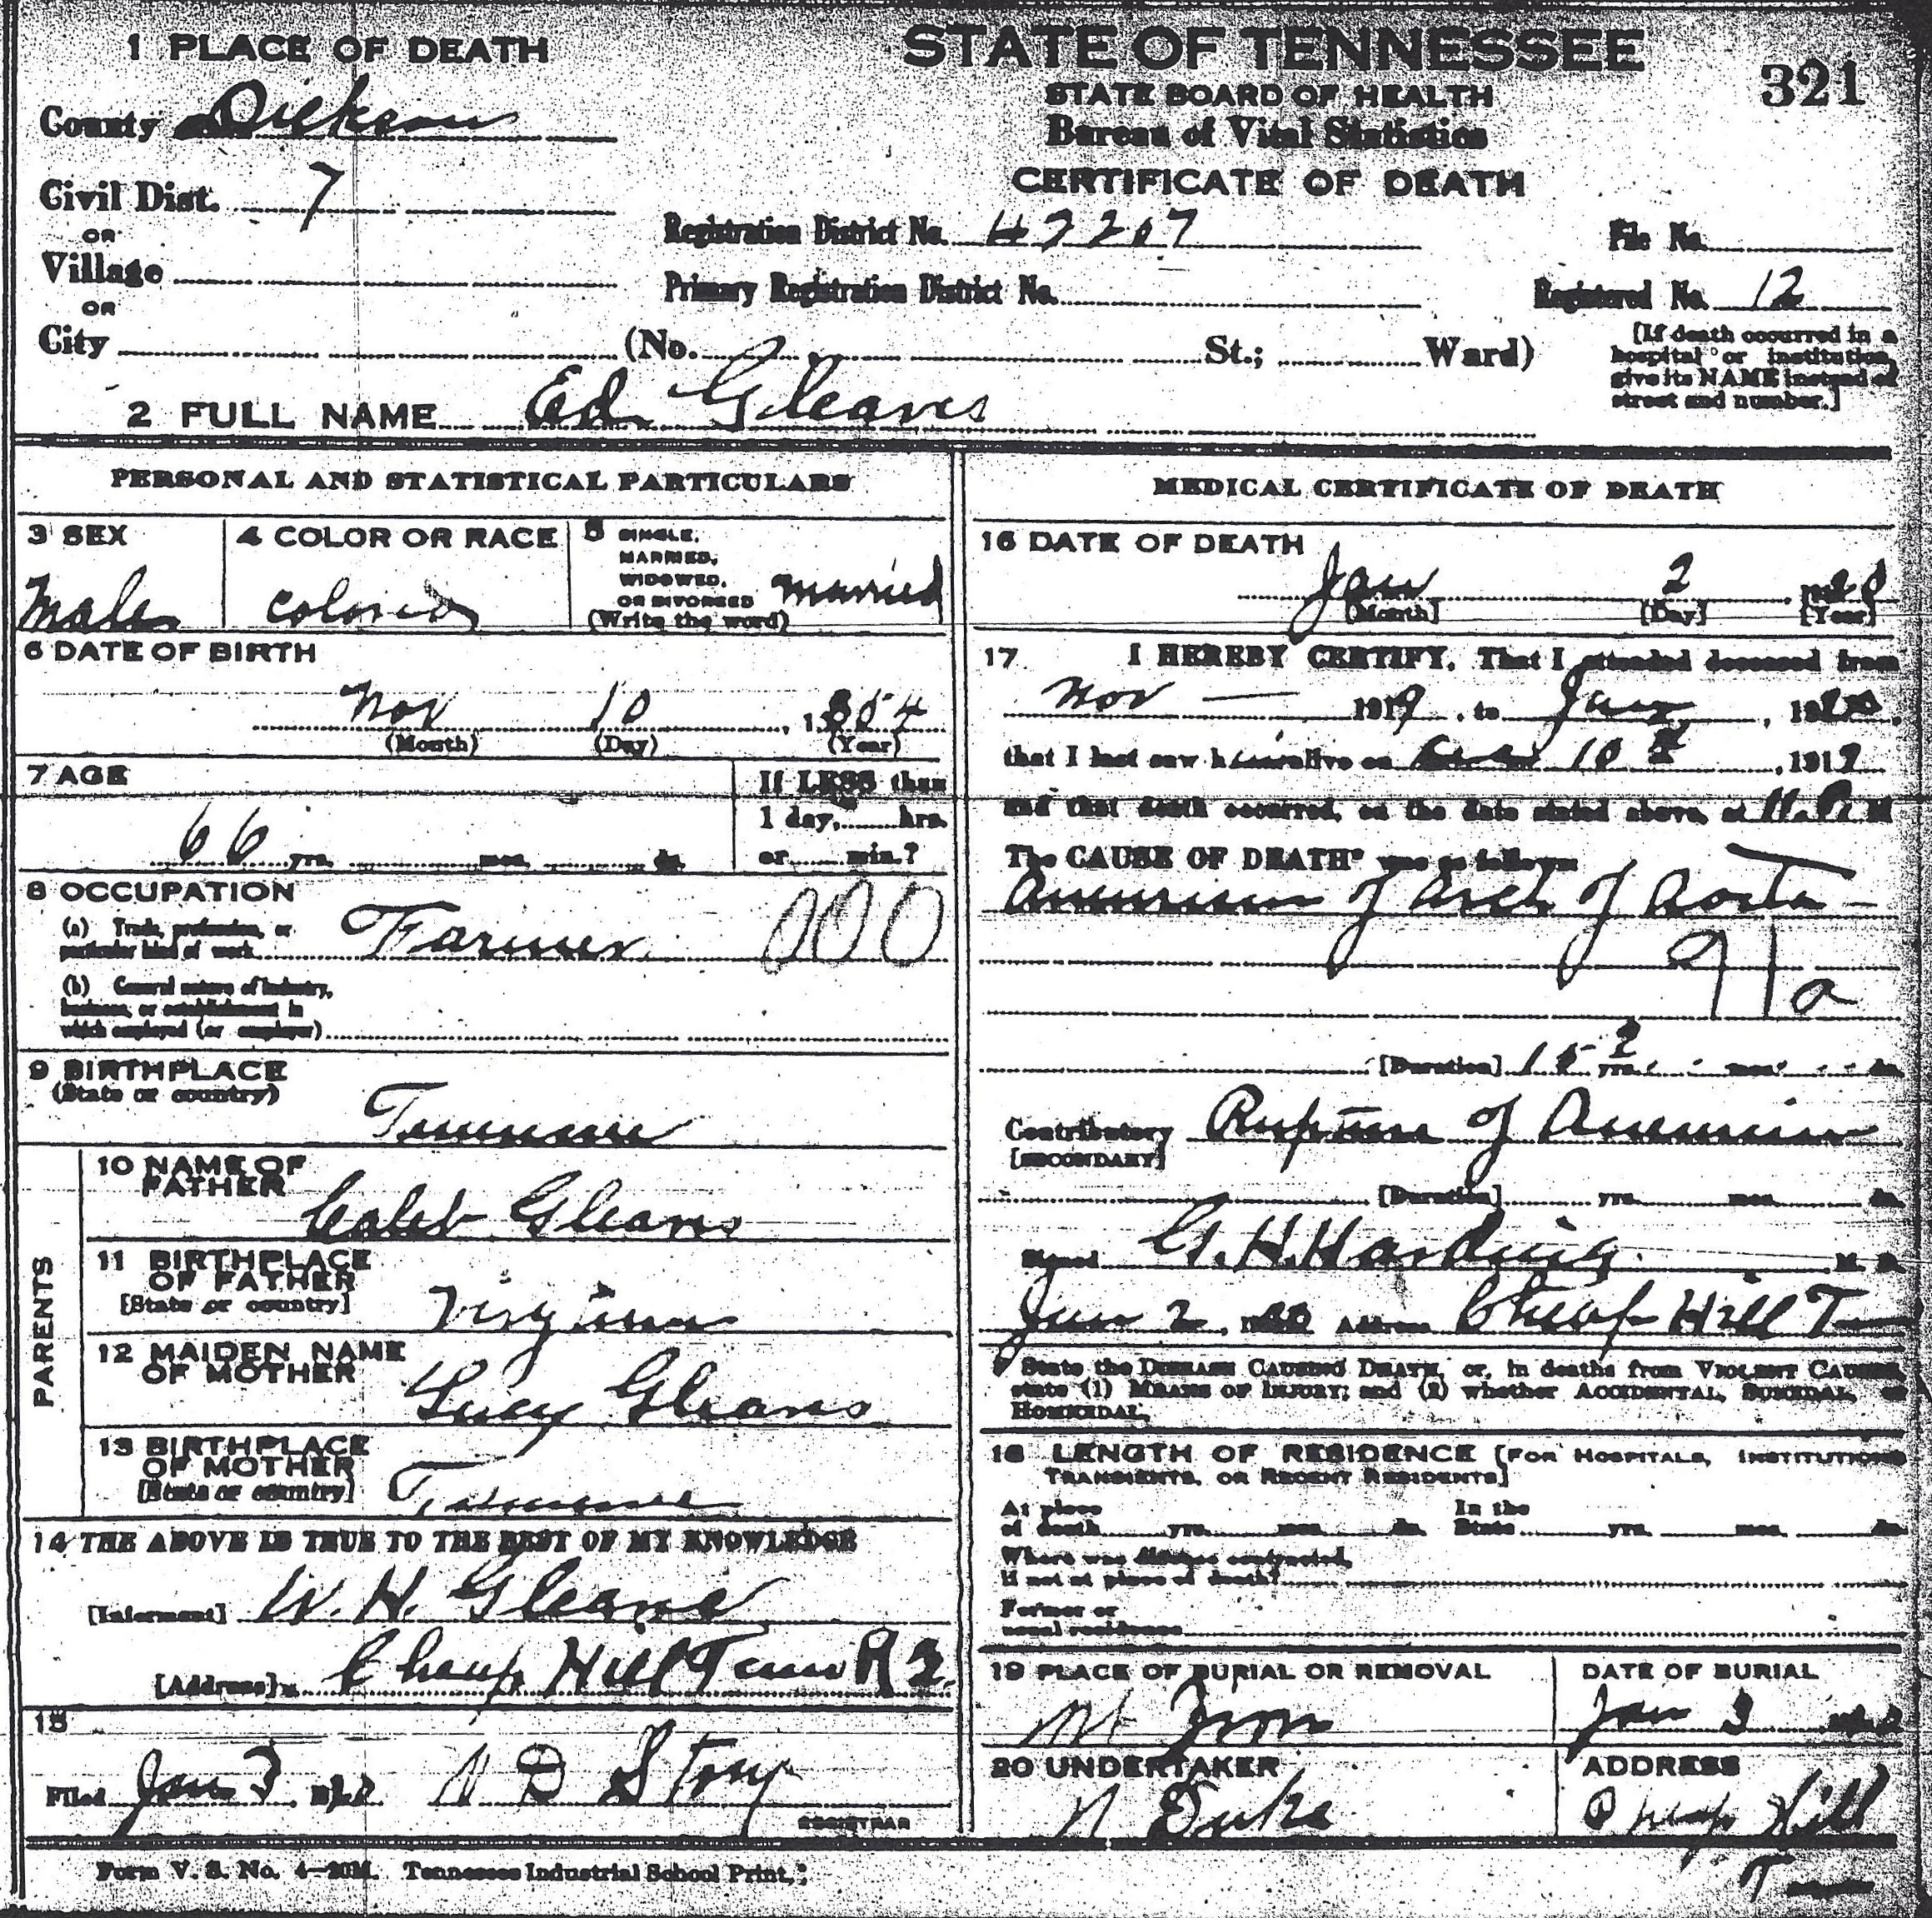 1 PLACE OF DEATH
STATE OF TENNESSEE
STATE BOARD OF HEALTH
Bureau of Vital Statistics
CERTIFICATE OF DEATH
321
County Dickson
Civil Dist. 7
OR
Village
OR
City (No. St.; Ward)
Registration District No. 47207
Primary Registration District No.
File No.
Registered No. 12
[If death occurred in a
hospital or institution,
give its NAME instead of
street and number.]
2 FULL NAME Ed Gleaves
PERSONAL AND STATISTICAL PARTICULARS
3 SEX
Male
4 COLOR OR RACE
colored
5 SINGLE,
MARRIED,
WIDOWED,
OR DIVORCED
(Write the word)
married
6 DATE OF BIRTH
Nov 10, 1854
(Month) (Day) (Year)
7 AGE
66 yrs. mos. ds.
If LESS than
1 day, hrs.
or min.?
8 OCCUPATION
(a) Trade, profession, or
particular kind of work Farmer 000
(b) General nature of industry,
business, or establishment in
which employed (or employer)
9 BIRTHPLACE
(State or country)
Tennessee
PARENTS
10 NAME OF
FATHER
Caleb Gleaves
11 BIRTHPLACE
OF FATHER
[State or country]
Virginia
12 MAIDEN NAME
OF MOTHER
Lucy Gleaves
13 BIRTHPLACE
OF MOTHER
[State or country]
Tennessee
14 THE ABOVE IS TRUE TO THE BEST OF MY KNOWLEDGE
[Informant] W. H. Gleaves
[Address] Cheap Hill Tenn R 2
15
Filed Jan 3, 1920 N D Story
REGISTRAR
MEDICAL CERTIFICATE OF DEATH
16 DATE OF DEATH
Jan 2, 1920
[Month] [Day] [Year]
17 I HEREBY CERTIFY, That I attended deceased from
Nov — 1919, to Jan, 1920,
that I last saw him alive on 10th, 1919
and that death occurred, on the date stated above, at M
The CAUSE OF DEATH* was as follows:
Aneurism of arch of Aorta —
91a
[Duration] 15? yrs. mos. ds.
Contributory Rupture of Aneurism
[SECONDARY]
[Duration] yrs. mos. ds.
Signed G. H. Harding M. D.
Jan 2, 1920 Address Cheap Hill T
* State the DISEASE CAUSING DEATH, or, in deaths from VIOLENT CAUSES,
state (1) MEANS OF INJURY; and (2) whether ACCIDENTAL, SUICIDAL, or
HOMICIDAL.
18 LENGTH OF RESIDENCE [FOR HOSPITALS, INSTITUTIONS
TRANSIENTS, OR RECENT RESIDENTS]
At place
of death yrs. mos. ds.
In the
State yrs. mos. ds.
Where was disease contracted,
if not at place of death?
Former or
usual residence
19 PLACE OF BURIAL OR REMOVAL
Mt Zion
DATE OF BURIAL
Jan 3 1920
20 UNDERTAKER
N Duke
ADDRESS
Cheap Hill
T
Form V. S. No. 4—20M. Tennessee Industrial School Print.